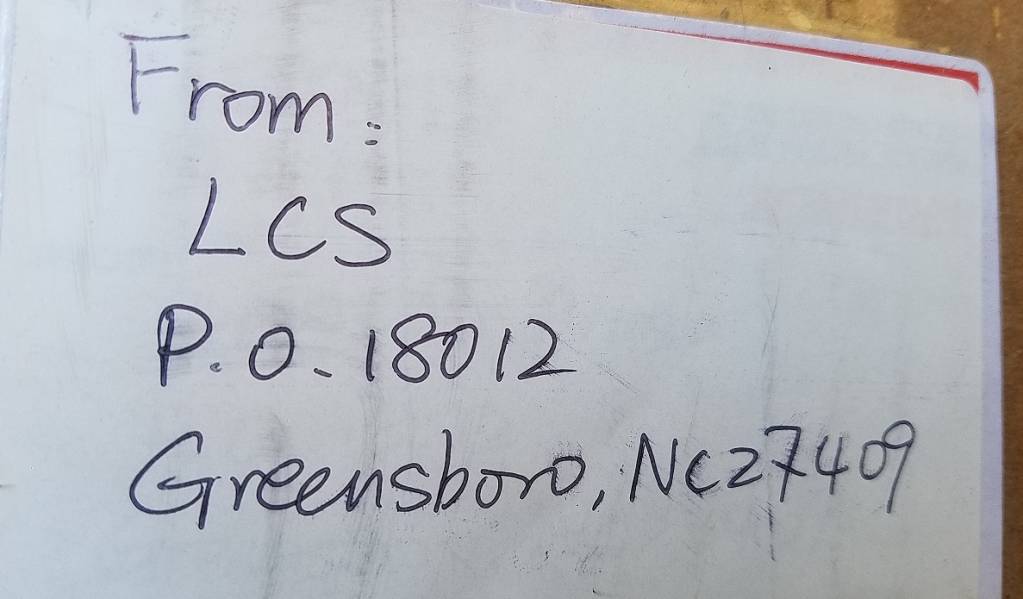 From:
LCS
P.O. 18012
Greensboro, NC 27409